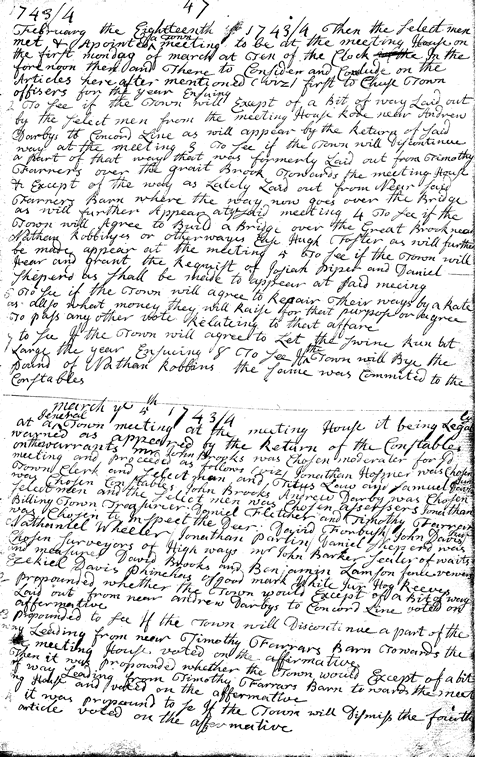 1743/4 47
February the Eighteenth 1743/4 Then the Select men
met & Apointed a Town meeting to be at the meeting House on
the first monday of march at Ten of the Clock In the
fore noon then and There to Consider and Conclude on the
Articles here after mentioned (viz) first to Chuse Town
offisers for the year Ensuing
2 To See if the Town will Exept of a Bit of way Laid out
by the Select men from the meeting House Rode near Andrew
Darbys to Concord Line as will appear by the Return of said
way at the meeting 3 To See if the Town will Discontinue
a part of that way that was formerly Laid out from Timothy
Farrers over the grait Brook Towards the meeting House
& Except of the way as Lately Laid out from Near said
Farrers Barn where the way now goes over the Bridge
as will further Appear at said meeting 4 To See if the
Town will Agree to Build a Bridge over the Great Brook near
Nathan Robinses or otherways Hugh Foster as will further
be made appear at the meeting 5 To See if the Town will
Hear and grant the Request of Josiah Piper and Daniel
Sheperd as Shall be made to appear at said meeing
6 To See if the Town will agree to Repair Their ways by a Rate
as allso what money they will Raise for that purpose or agree
To pass any other vote Relateing to that affare
7 to See If the Town will agree to Let the Swine Run at
Large the year Ensuing 8 To See If the Town will Bye the
Pound of Nathan Robbins the Same was Commited to the
Constables
march ye 5th 1743/4
at a General Town meeting at the meeting House it being Legaly
warned as appeared by the Return of the Constables
on the warrants mr John Brooks was Chosen moderator for sd
meeting and proceeded as follows (viz) Jonathan Hosmer was Chosen
Town Clerk and Select man and Titus Law and Samuel
was Chosen Constable John Brooks Andrew Darby was Chosen
Select men and the Select men was Chosen assessers Jonathan
Billing Town Treasurer Daniel Fletcher and Timothy Farrer
was Chosen to Inspect the Deer: David Forbush John Davis
Nathaniel Wheeler Jonathan Parlin Daniel Sheperd was
Chosen Surveyors of High ways mr John Barker Sealer of waits
and measures David Brooks and Benjamin Lamson fence vewers
Ezekiel Davis Phinehas Osgood mark White Jur Hog Reeves
propounded whether the Town would Except of a Bit of way
Laid out from near Andrew Darbys to Concord Line voted on
affermative
propounded to See If the Town will Discontinue a part of the
way Leading from near Timothy Farrars Barn Towards the
meeting House voted on the affirmative
Then it was propounded whether the Town would Except of a bit
of way Leading from Timothy Farrars Barn towards the meet
ng House and voted on the affirmative
it was propound to Se If the Town will Dismiss the fourth
article voted on the affermative